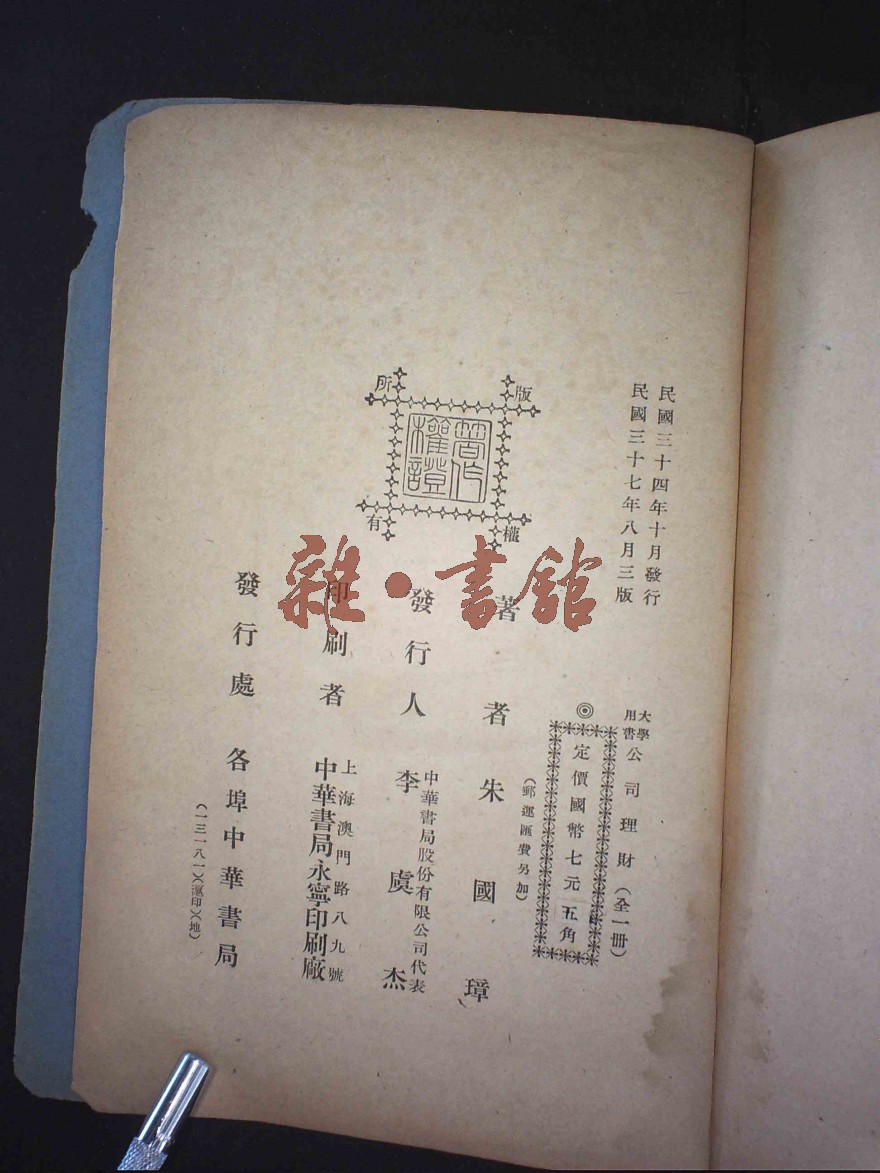 民國三十四年十月發行
民國三十七年八月三版
大學用書 公司理財(全一册)
◎定價國幣七元五角
(郵運匯費另加)
版權所有
著作權證
著者 朱國璋
中華書局股份有限公司代表
發行人 李虞杰
上海澳門路八九號
印刷者 中華書局永寧印刷廠
發行處 各埠中華書局
(一三一八一)(滬印)(地)
雜·書館